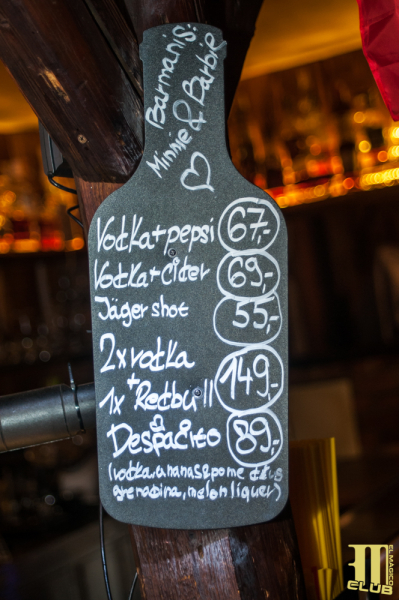 Barmanis:
Minnie & Barbie
Vodka+pepsi 67,-
Vodka+cider 69,-
Jäger shot 55,-
2x vodka
+
1x Redbull 149,-
Despacito 89,-
(vodka, ananas&pome
grenadina, melon liquer)
EL MAGICO
CLUB